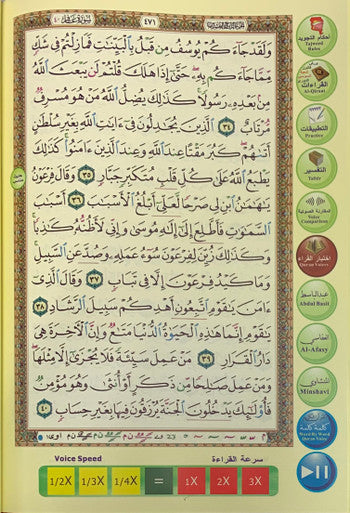 سُورَةُ غَافِرٍ ٤٠
٤٧١
وَلَقَدْ جَآءَكُمْ يُوسُفُ مِن قَبْلُ بِٱلْبَيِّنَٰتِ فَمَا زِلْتُمْ فِى شَكٍّ
مِّمَّا جَآءَكُم بِهِۦ حَتَّىٰٓ إِذَا هَلَكَ قُلْتُمْ لَن يَبْعَثَ ٱللَّهُ
مِنۢ بَعْدِهِۦ رَسُولًا كَذَٰلِكَ يُضِلُّ ٱللَّهُ مَنْ هُوَ مُسْرِفٌ
مُّرْتَابٌ ٣٤ ٱلَّذِينَ يُجَٰدِلُونَ فِىٓ ءَايَٰتِ ٱللَّهِ بِغَيْرِ سُلْطَٰنٍ
أَتَىٰهُمْ كَبُرَ مَقْتًا عِندَ ٱللَّهِ وَعِندَ ٱلَّذِينَ ءَامَنُوا۟ كَذَٰلِكَ
يَطْبَعُ ٱللَّهُ عَلَىٰ كُلِّ قَلْبِ مُتَكَبِّرٍ جَبَّارٍ ٣٥ وَقَالَ فِرْعَوْنُ
يَٰهَٰمَٰنُ ٱبْنِ لِى صَرْحًا لَّعَلِّىٓ أَبْلُغُ ٱلْأَسْبَٰبَ ٣٦ أَسْبَٰبَ
ٱلسَّمَٰوَٰتِ فَأَطَّلِعَ إِلَىٰٓ إِلَٰهِ مُوسَىٰ وَإِنِّى لَأَظُنُّهُۥ كَٰذِبًا
وَكَذَٰلِكَ زُيِّنَ لِفِرْعَوْنَ سُوٓءُ عَمَلِهِۦ وَصُدَّ عَنِ ٱلسَّبِيلِ
وَمَا كَيْدُ فِرْعَوْنَ إِلَّا فِى تَبَابٍ ٣٧ وَقَالَ ٱلَّذِىٓ
ءَامَنَ يَٰقَوْمِ ٱتَّبِعُونِ أَهْدِكُمْ سَبِيلَ ٱلرَّشَادِ ٣٨
يَٰقَوْمِ إِنَّمَا هَٰذِهِ ٱلْحَيَوٰةُ ٱلدُّنْيَا مَتَٰعٌ وَإِنَّ ٱلْءَاخِرَةَ هِىَ
دَارُ ٱلْقَرَارِ ٣٩ مَنْ عَمِلَ سَيِّئَةً فَلَا يُجْزَىٰٓ إِلَّا مِثْلَهَا
وَمَنْ عَمِلَ صَٰلِحًا مِّن ذَكَرٍ أَوْ أُنثَىٰ وَهُوَ مُؤْمِنٌ
فَأُو۟لَٰٓئِكَ يَدْخُلُونَ ٱلْجَنَّةَ يُرْزَقُونَ فِيهَا بِغَيْرِ حِسَابٍ ٤٠
أحكام التجويد
Tajweed
Rules
القراءات
Al-Qiraat
التطبيقات
Practice
التفسير
Tafsir
المقارنة الصوتية
Voice
Comparison
اختيار القراء
Quran Voices
عبدالباسط
Abdul Basit
العفاسي
Al-Afasy
المنشاوي
Minshavi
كلمة كلمة
Word By Word
Quran Voice
Voice Speed
سرعة القراءة
1/2X 1/3X 1/4X = 1X 2X 3X